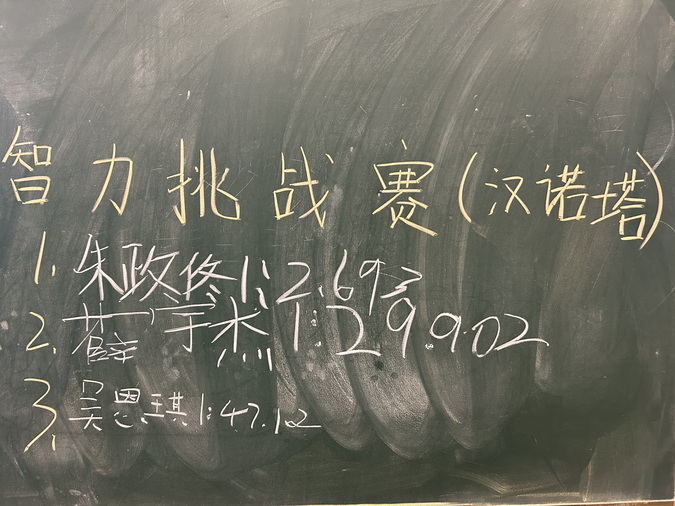 智力挑战赛(汉诺塔)
1. 朱政佟 1:2.693
2. 薛宇杰 1:29.902
3. 吴思琪 1:47.12